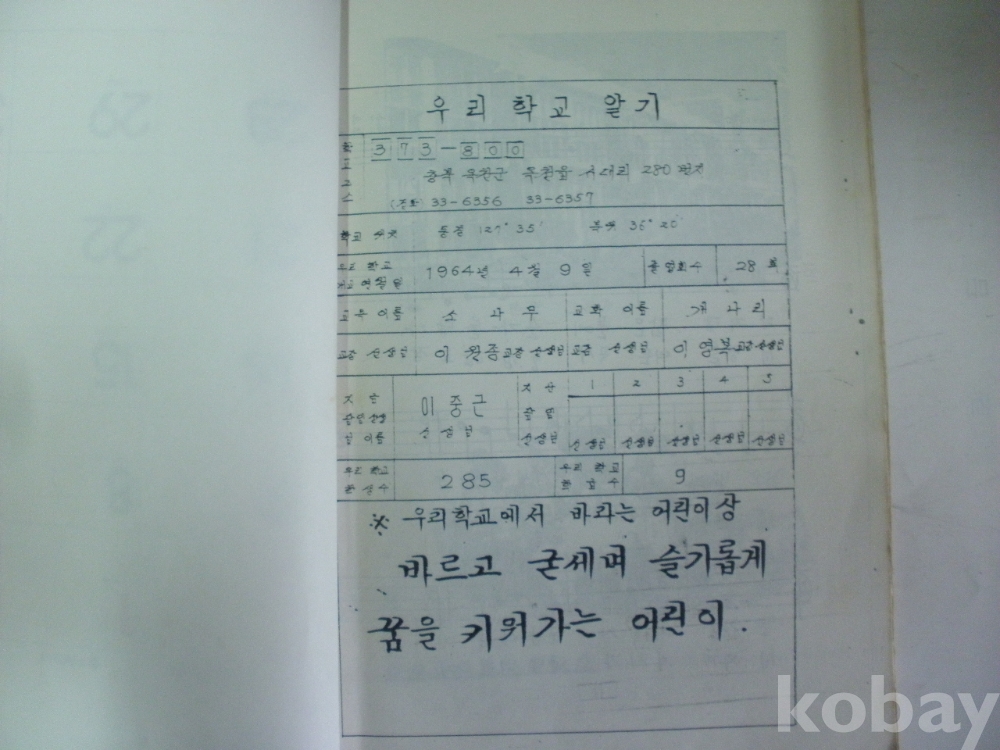 우리 학교 알기
학교주소 373-800
충북 옥천군 옥천읍 서대리 280번지
(전화) 33-6356 33-6357
학교 위치 동경 127° 35′ 북위 36° 20′
우리 학교 개교 연월일 1964년 4월 9일 졸업회수 28회
교목 이름 소나무 교화 이름 개나리
교장 선생님 이완종 교장 선생님 교감 선생님 이영복 교감 선생님
지금 담임선생님 이름 이중근 선생님 지난 담임 선생님 1 2 3 4 5
선생님 선생님 선생님 선생님 선생님
우리 학교 학생수 285 우리 학교 학급수 9
※ 우리학교에서 바라는 어린이상
바르고 굳세며 슬기롭게
꿈을 키워가는 어린이.
kobay